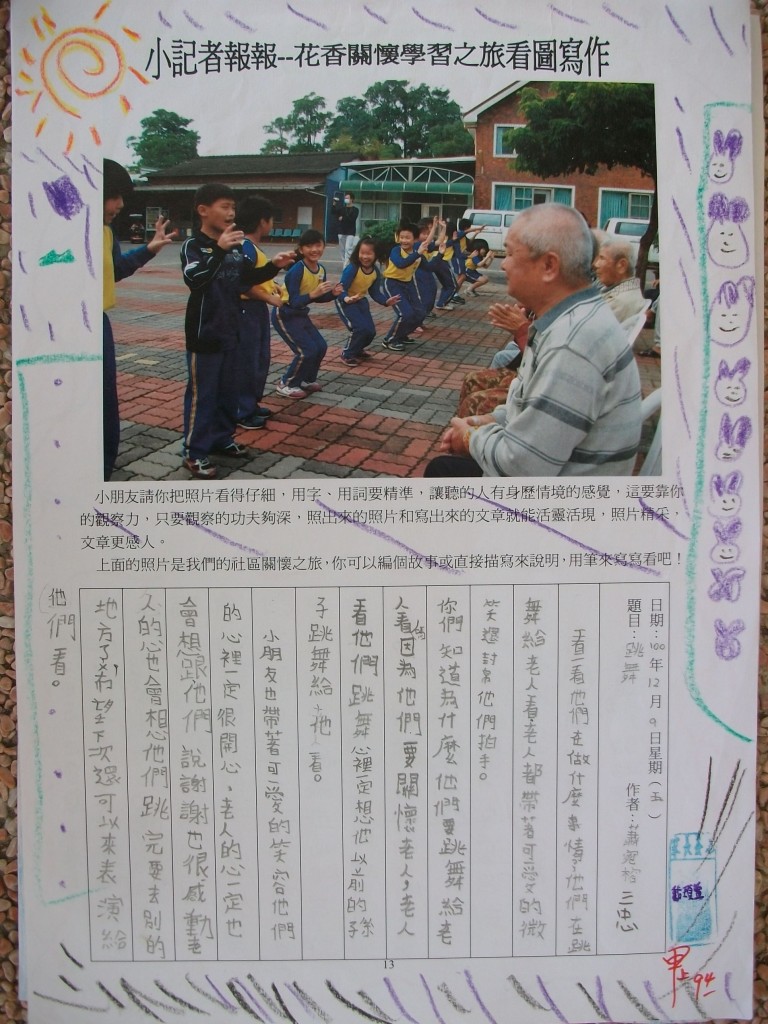 小記者報報--花香關懷學習之旅看圖寫作
小朋友請你把照片看得仔細，用字、用詞要精準，讓聽的人有身歷情境的感覺，這要靠你
的觀察力，只要觀察的功夫夠深，照出來的照片和寫出來的文章就能活靈活現，照片精采，
文章更感人。
上面的照片是我們的社區關懷之旅，你可以編個故事或直接描寫來說明，用筆來寫寫看吧！
日期：100年12月9日星期（五）
題目：跳舞
作者：蕭 三忠
看一看他們在做什麼事情，他們在跳
舞給老人看，老人都帶著可愛的微
笑還討 他們拍手。
你們知道為什麼他們要跳舞給老
人看，因為他們要關懷老人，老人
看他們跳舞心裡一定想他以前的孫
子跳舞給他看。
小朋友也帶著可愛的笑容他們
的心裡一定很開心，老人的心一定也
會想跟他們說謝謝也很感動老
人的心也會想他們跳完要去別的
地方了，希望下次還可以來表演給
他們看。
13
甲上 94